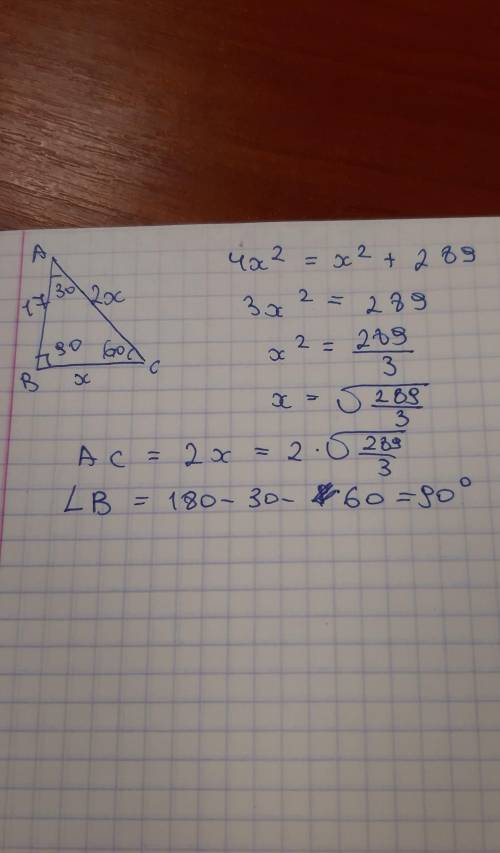 A
17 30 2x
90 60
B x C
4x² = x² + 289
3x² = 289
x² = 289/3
x = √(289/3)
AC = 2x = 2 · √(289/3)
∠B = 180 - 30 - 60 = 90°